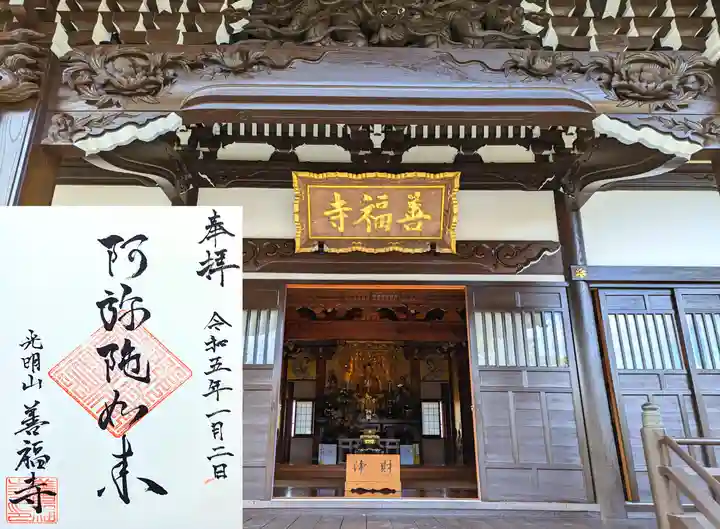 寺福善
奉拝
令和五年一月二日
阿弥陀如来
光明山
善福寺
財浄